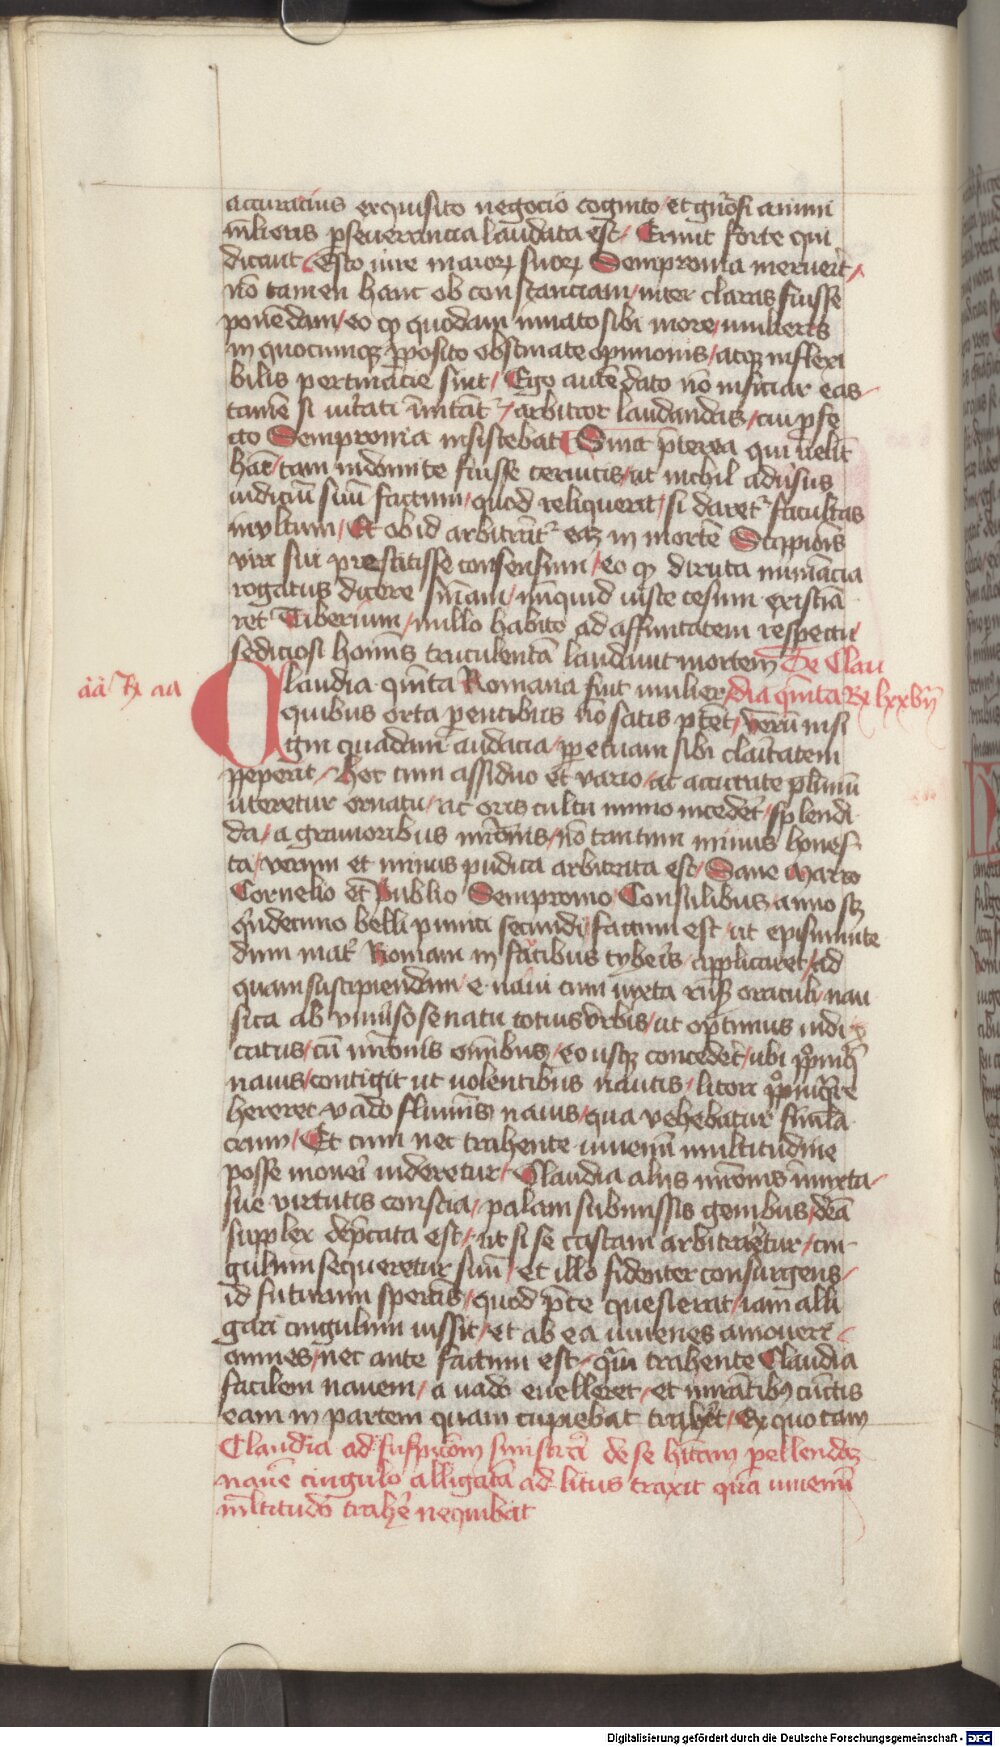 accuracius exquisito negocio cognito / et gn̄osi animi
ml̄ieris ꝑseuerancia laudata est / Erunt forte qui
dicant / Esto iure maioꝝ suoꝝ Sempronia meruerit /
nō tamen hanc ob constanciam / inter claras fuisse
ponēdam / eo ꝙ quodam innato sibi more / mulieres
in quocumqꝫ ꝓposito obstinate opinionis / atqꝫ inflexi
bilis pertinacie sint / Ego autē dato nō inficiar eas
tamē si ūitati īnitāt᷑ / arbitror laudandas / cui ꝑfe
cto Sempronia insistebat Sunt p̄terea qui uelīt
hāc / tam indomite fuisse ceruicis / ut nichil aduersus
iudiciū suū factum / quod reliquerit / si daret᷑ facultas
inultum / Et ob id arbitrāt᷑ eaꝫ in mortē Scippionis
viri sui prestitisse consensum / eo ꝙ diruta numācia
rogatus dicere sn̄iam / nūquid iuste cesum existiā
ret Tiberium / nullo habito ad affinitatem respectu
sediciosi hominis truculentā laudauit mortem De Clau
āā Rx aa
Claudia quīta Romana fuit mulier / dia quīta Rx lxxvij
quibus orta parentibus nō satis pt̄et / verū insi
igni quadam audacia / ꝑpetuam sibi clāitatem
peperit / Hec cum assiduo et vario / ac accurate plurimū
uteretur ornatu / ac oris cultu nimio incederet / splendi
da / a grauioribus mr̄onis / nō tantum minus hones
ta / verum et minus pudica arbitrata est / Sane Marco
Cornelio et Publio Sempronio Consulibus anno scꝫ
quīdecimo belli punici secundi / factum est / ut episinunte
dum mat᷑ Romam in faucibus tyberis applicaret / ad
quam suscipiendam / e naui cum iuxta rn̄sū oraculi / nau
sica ab vniuerso senatu totius vrbis / ut optimus iudi
catus / cū mr̄onis om̄ibus / eo usqꝫ concederet / ubi
nauis / contigit ut uolentibus nautis / litori
hereret vado fluminis nauis / qua vehebatur simula
crum / Et cum nec trahente iuuenū multitudine
posse moueri uideretur / Claudia aliis mr̄onis īmixta
sue virtutis conscia / palam submissis genibus / deā
supplex dep̄cata est / ut si se castam arbitraretur / cin
gulum sequeretur suū / et illo fidenter consurgens /
id futurum sperans / quod p̄ce quesierat / iam alli
gari cingulum iussit / et ab ea iuuenes amoueri
omnes / nec ante factum est / quā trahente Claudia
facilem nauem / a uado euelleret / et mirātibꝰ cūctis
eam in partem quam cupiebat traheret / Ex quo tam
Claudia ad suspicōm sinistrā de se hitam pellendaꝫ
nauē cingulo alligatā ad litus traxit quā iuuenū
ml̄titudo trahere nequibat
Digitalisierung gefördert durch die Deutsche Forschungsgemeinschaft - DFG